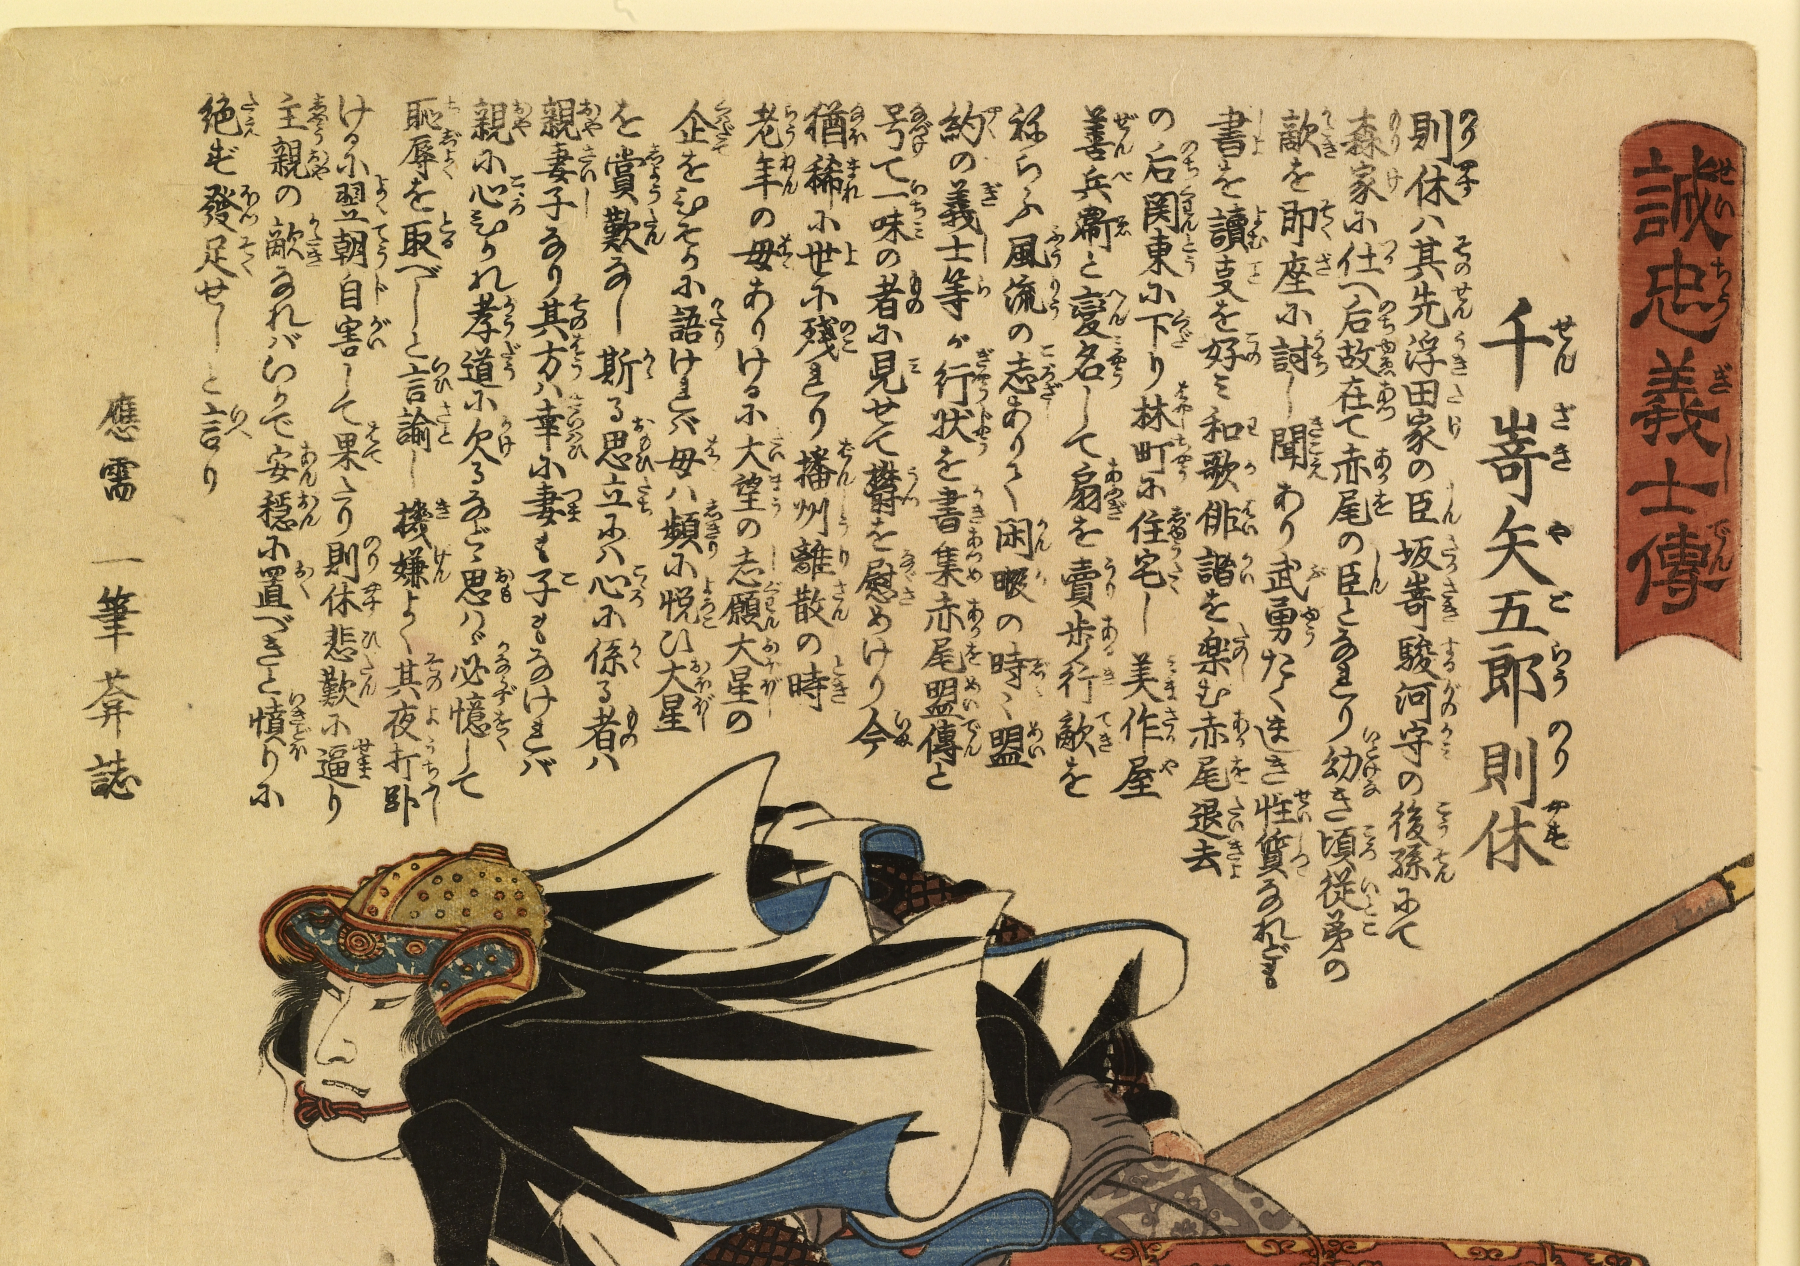 誠忠義士傳
千嵜矢五郎則休
則休ハ其先浮田家の臣坂嵜駿河守の後孫にて
森家に仕へ后故在て赤尾の臣となれり幼き頃従弟の
敵を即座に討し聞あり武勇たくましき性質なれども
書を讀支を好ミ和歌俳諧を楽む赤尾退去
の后関東に下り林町に住宅し美作屋
善兵衞と變名して扇を賣歩行敵を
ねらふ風流の志ありて閑暇の時ミ盟
約の義士等が行状を書集赤尾盟傳と
号て一味の者に見せて欝を慰めけり今
猶稀に世に残れり播州離散の時
老年の母ありけるに大望の志願大星の
企をひそかに語けれバ母ハ頻に悦ひ大星
を賞歎なし斯る思立にハ心に係る者ハ
親妻子なり其方ハ幸に妻も子もなけれバ
親に心ひかれ孝道に欠るなど思ハヾ必憶して
恥辱を取べしと言諭し機嫌よく其夜打臥
けるに翌朝自害して果たり則休悲歎に逼り
主親の敵なれバいかで安穏に置べきと憤りに
絶ず發足せしと言り
應需 一筆菴誌